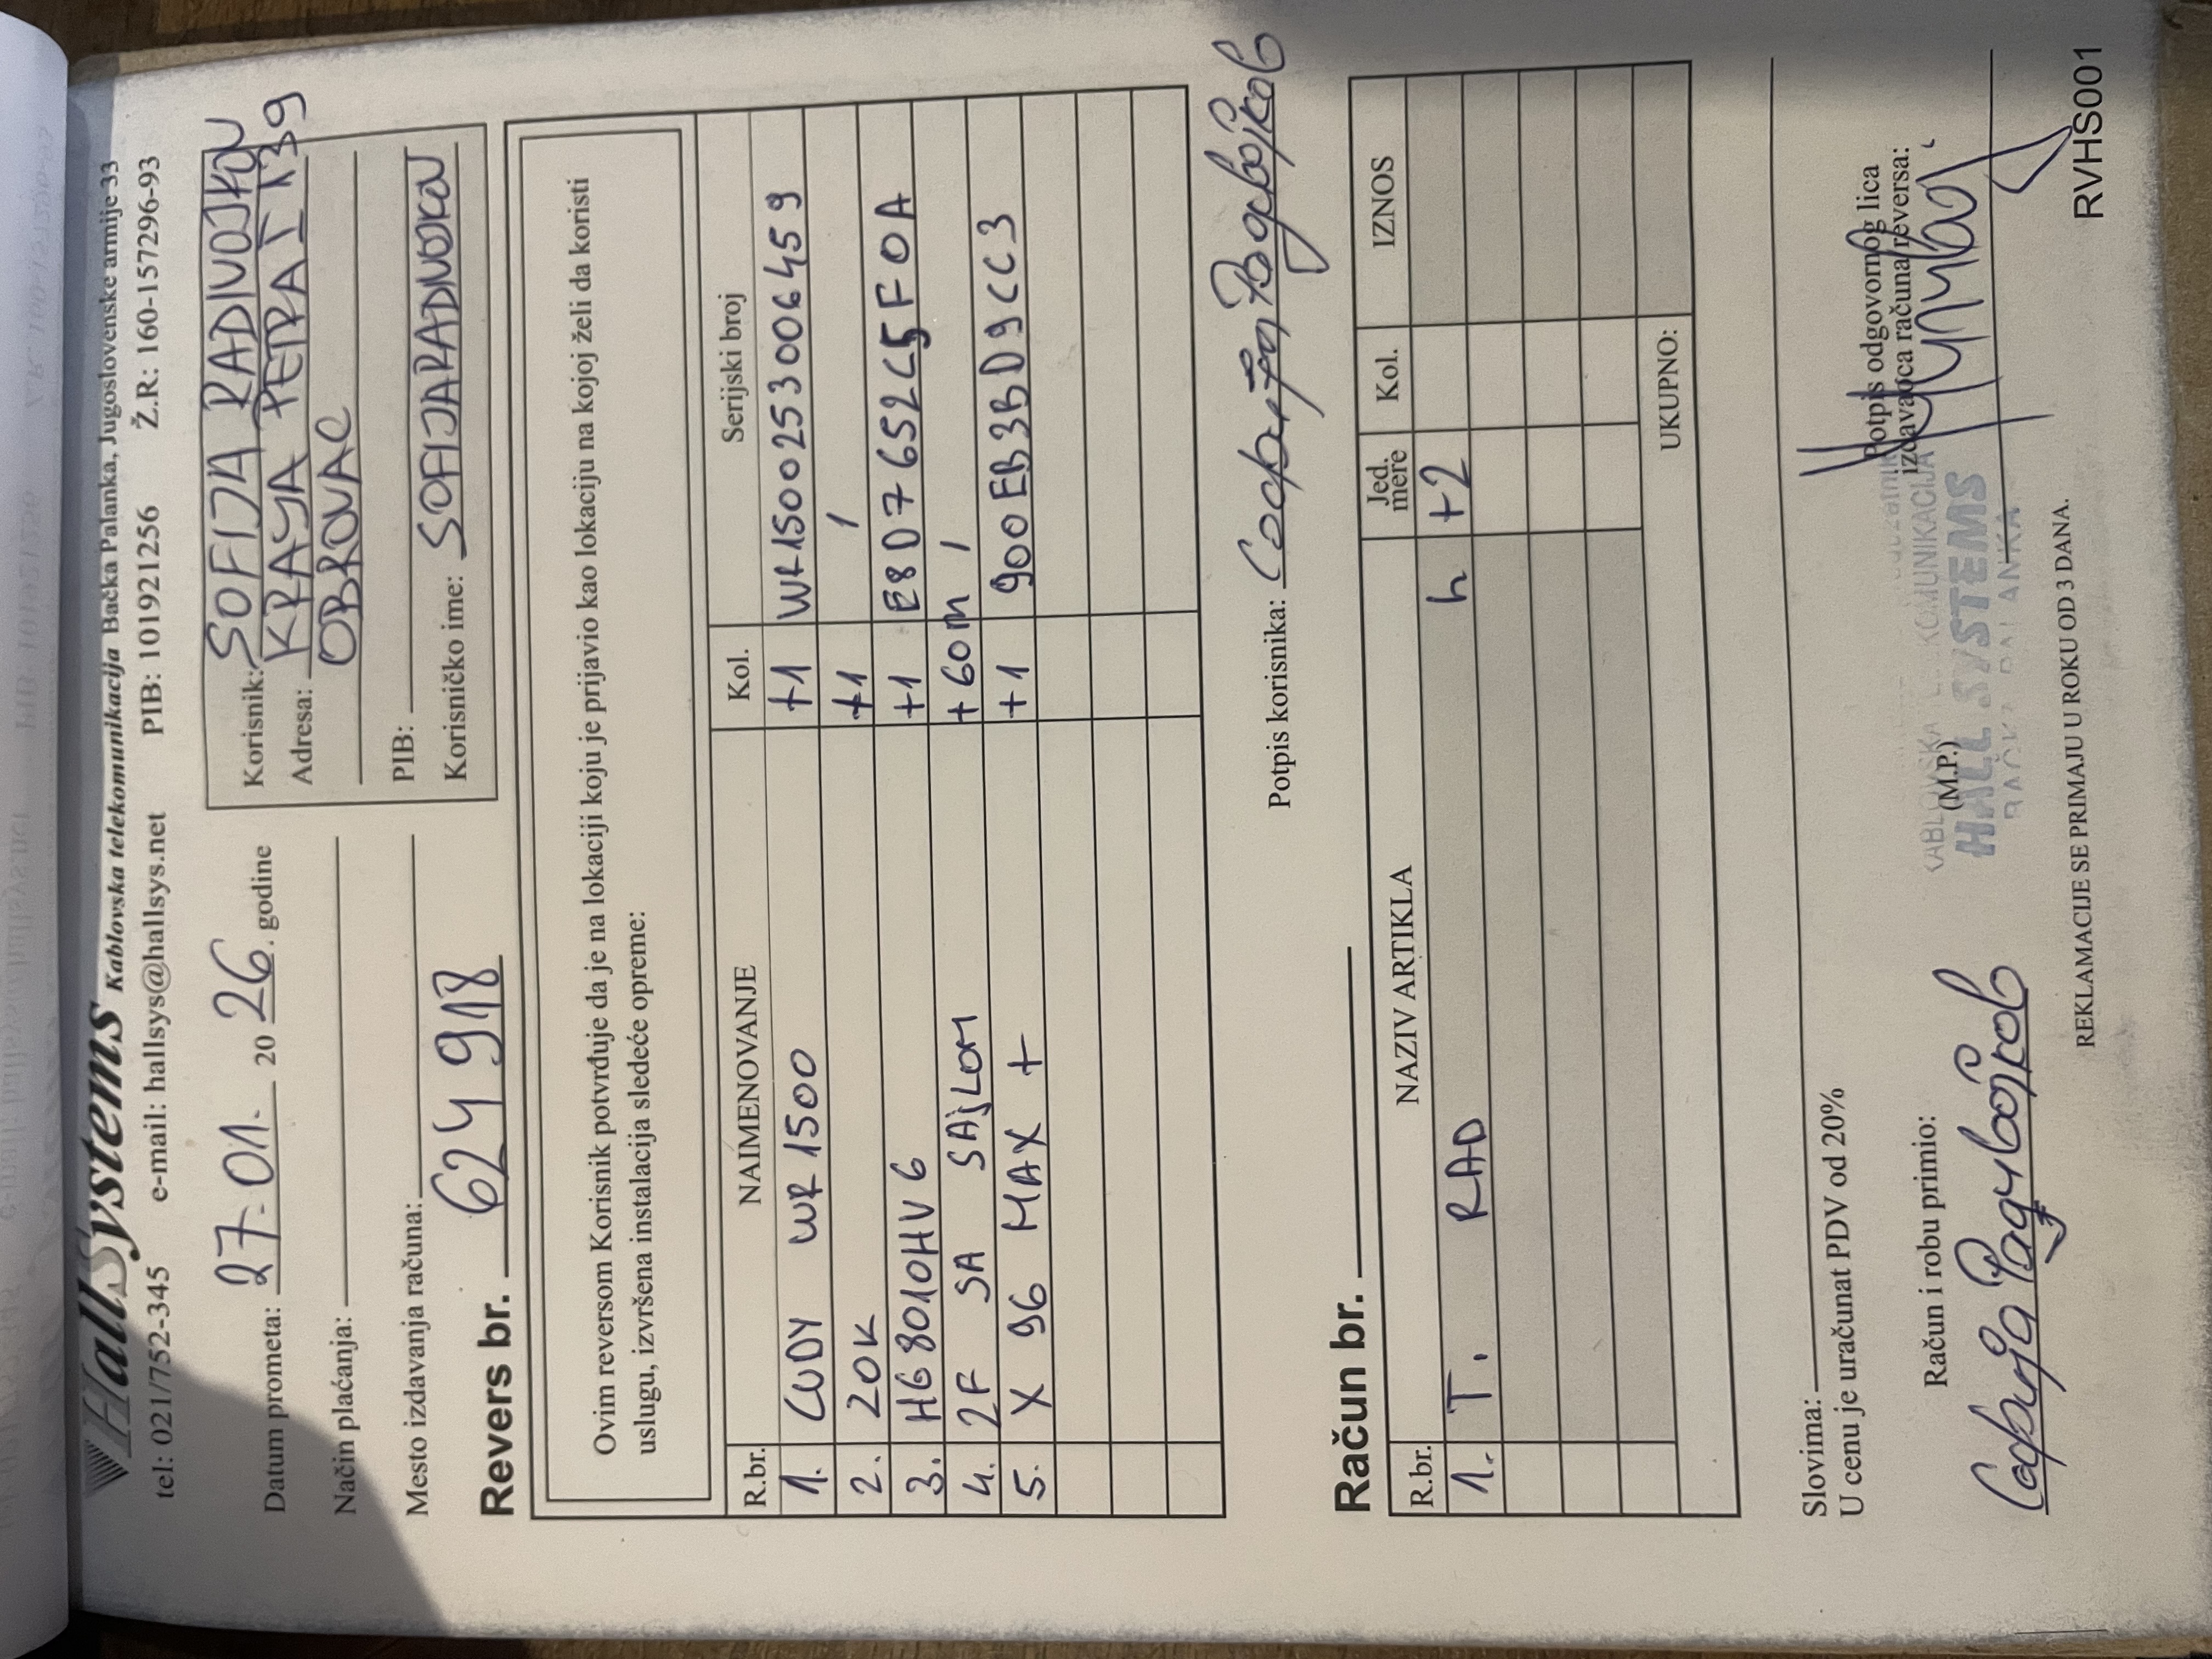 HallSystems Kablovska telekomunikacija Bačka Palanka, Jugoslovenske armije 33
tel: 021/752-345 e-mail: hallsys@hallsys.net PIB: 101921256 Ž.R: 160-157296-93
Datum prometa: 27.01. 2026. godine
Način plaćanja:
Mesto izdavanja računa:
Korisnik: SOFIJA RADIVOJKOV
Adresa: KRALJA PETRA I 139
OBROVAC
PIB:
Korisničko ime: SOFIJARADIVOJKOV
Revers br. 624918
Ovim reversom Korisnik potvrđuje da je na lokaciji koju je prijavio kao lokaciju na kojoj želi da koristi
uslugu, izvršena instalacija sledeće opreme:
R.br. NAIMENOVANJE Kol. Serijski broj
1. CUDY WR 1500 +1 WR1500253006459
2. 20K +1 /
3. HG8010HV6 +1 E8D7652C5F0A
4. 2F SA SAJLOM +60m /
5. X 96 MAX + +1 900EB3BD9CC3
Potpis korisnika: Софија Радивојков
Račun br.
R.br. NAZIV ARTIKLA Jed. mere Kol. IZNOS
1. T. RAD h +2
UKUPNO:
Slovima:
U cenu je uračunat PDV od 20%
Račun i robu primio:
Софија Радивојков
(M.P.)
KABLOVSKA TELEKOMUNIKACIJA
HALL SYSTEMS
BAČKA PALANKA
Potpis odgovornog lica
izdavaoca računa/reversa:
REKLAMACIJE SE PRIMAJU U ROKU OD 3 DANA.
RVHS001